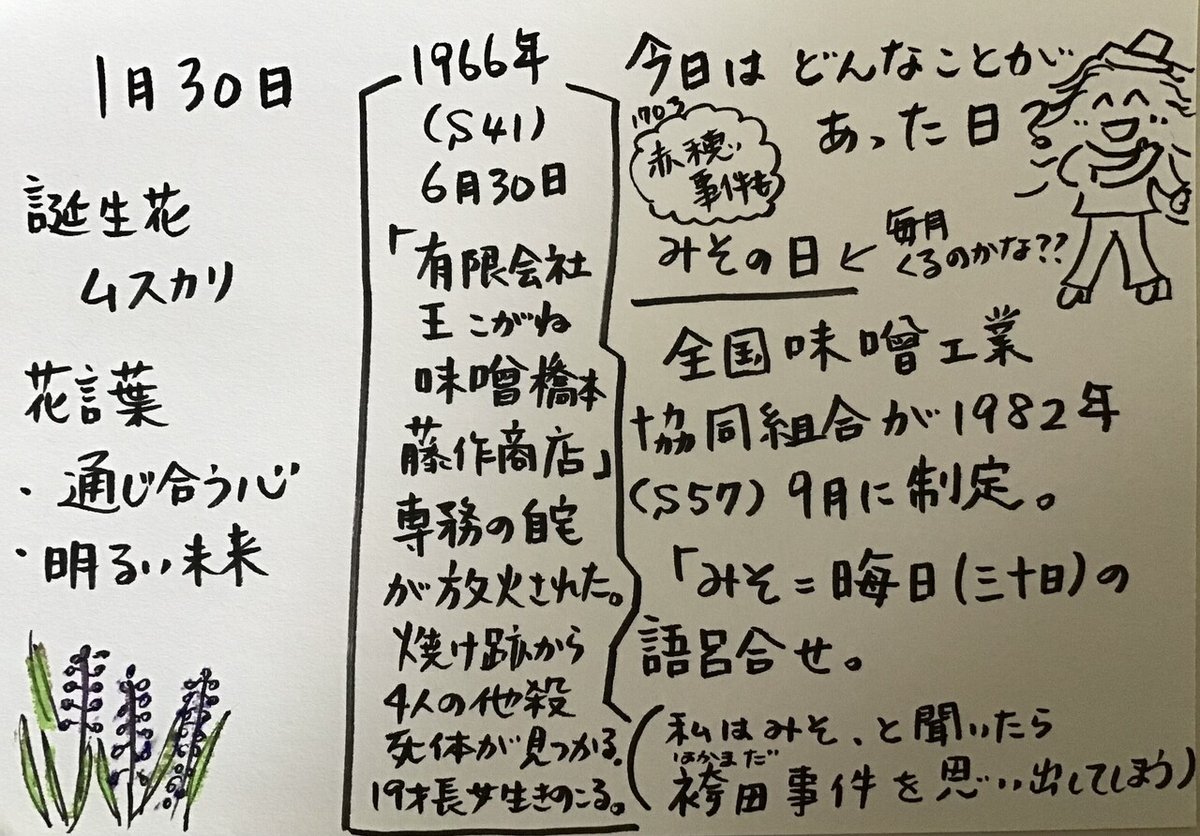 1月30日
誕生花
ムスカリ
花言葉
・通じ合う心
・明るい未来
1966年
(S41)
6月30日
「有限会社
王こがね
味噌橋本
藤作商店」
専務の自宅
が放火された。
焼け跡から
4人の他殺
死体が見つかる。
19才長女生きのこる。
今日はどんなことが
あった日?
1703
赤穂
事件も
みその日←毎月
くるのかな??
全国味噌工業
協同組合が1982年
(S57)9月に制定。
「みそ=晦日(三十日)の
語呂合せ。
(私はみそ、と聞いたら
はかまだ
袴田事件を思い出してしまう)